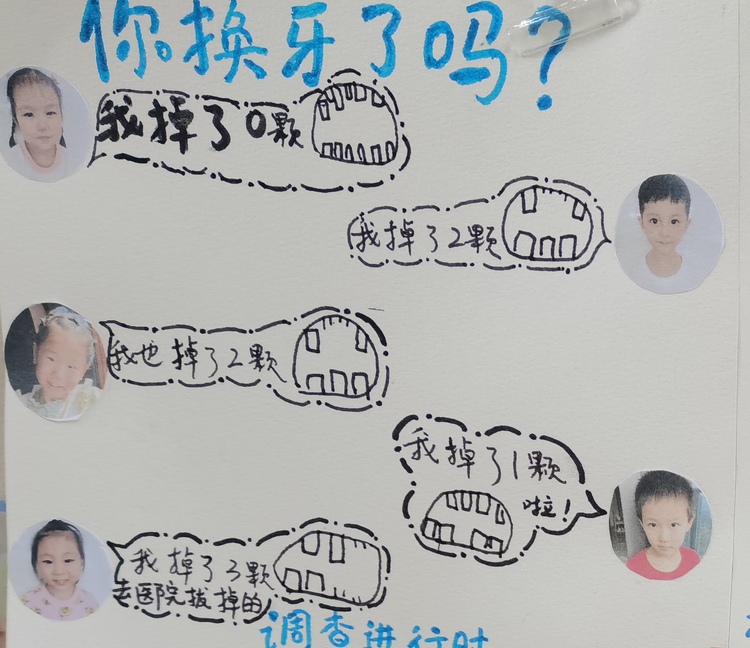 你换牙了吗？
我掉了0颗
我掉了2颗
我也掉了2颗
我掉了1颗
啦！
我掉了3颗
去医院拔掉的
调查进行时